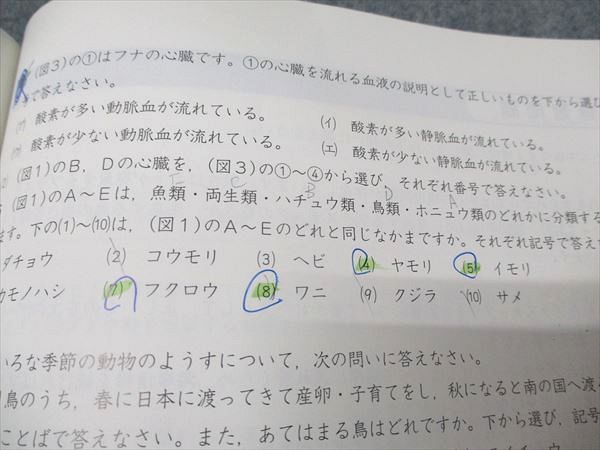 (図3)の①はフナの心臓です。①の心臓を流れる血液の説明として正しいものを下から選び
で答えなさい。
酸素が多い動脈血が流れている。 (イ) 酸素が多い静脈血が流れている。
酸素が少ない動脈血が流れている。 (エ) 酸素が少ない静脈血が流れている。
(図1)のB, Dの心臓を, (図3)の①～④から選び, それぞれ番号で答えなさい。
E C B D A
(図1)のA～Eは, 魚類・両生類・ハチュウ類・鳥類・ホニュウ類のどれかに分類する
ます。下の(1)～(10)は, (図1)のA～Eのどれと同じなかまですか。それぞれ記号で答え
ダチョウ (2) コウモリ (3) ヘビ (4) ヤモリ (5) イモリ
カモノハシ (7) フクロウ (8) ワニ (9) クジラ (10) サメ
いろな季節の動物のようすについて, 次の問いに答えなさい。
鳥のうち, 春に日本に渡ってきて産卵・子育てをし, 秋になると南の国へ渡
ことばで答えなさい。また, あてはまる鳥はどれですか。下から選び, 記号